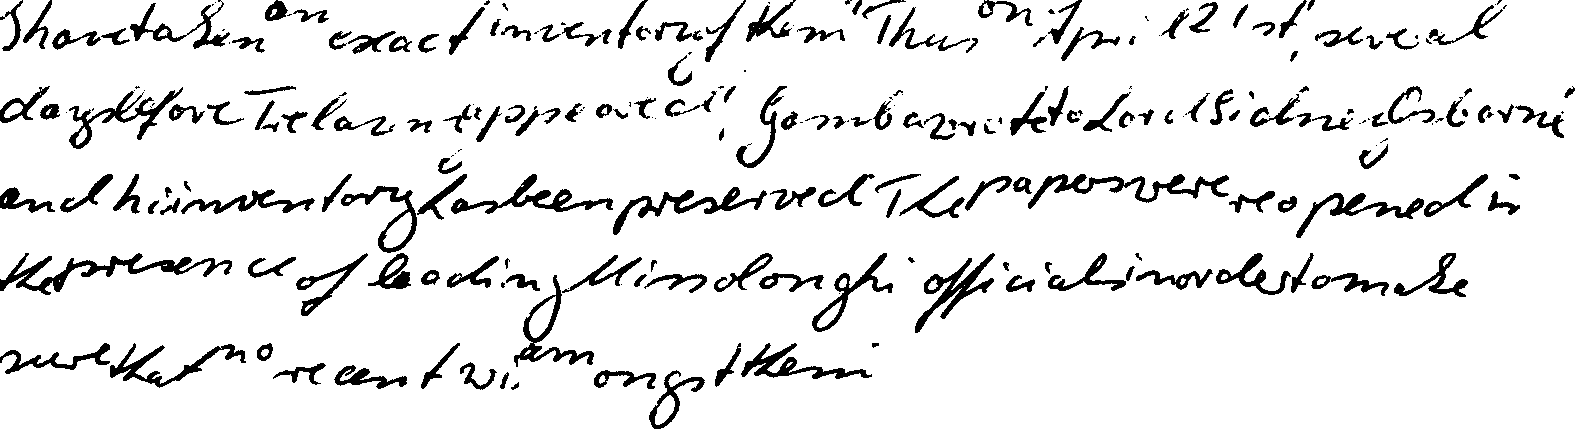 I have taken an exact inventory of them" Thus on April 21st, several
days before Trelawny appeared", Gamba wrote to Lord Sidney Osborne
and his inventory has been preserved The papers were reopened in
the presence of leading Missolonghi officials in order to make
sure that no recent will amongst them